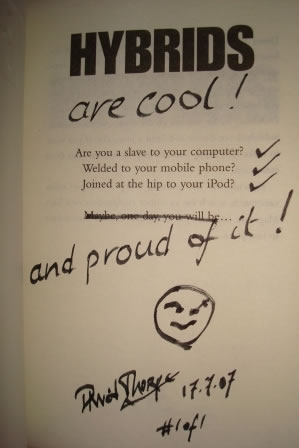 HYBRIDS
are cool!
Are you a slave to your computer? ✓
Welded to your mobile phone? ✓
Joined at the hip to your iPod? ✓
Maybe, one day, you will be...
and proud of it!
David Thorpe 17.7.07
#1 of 1